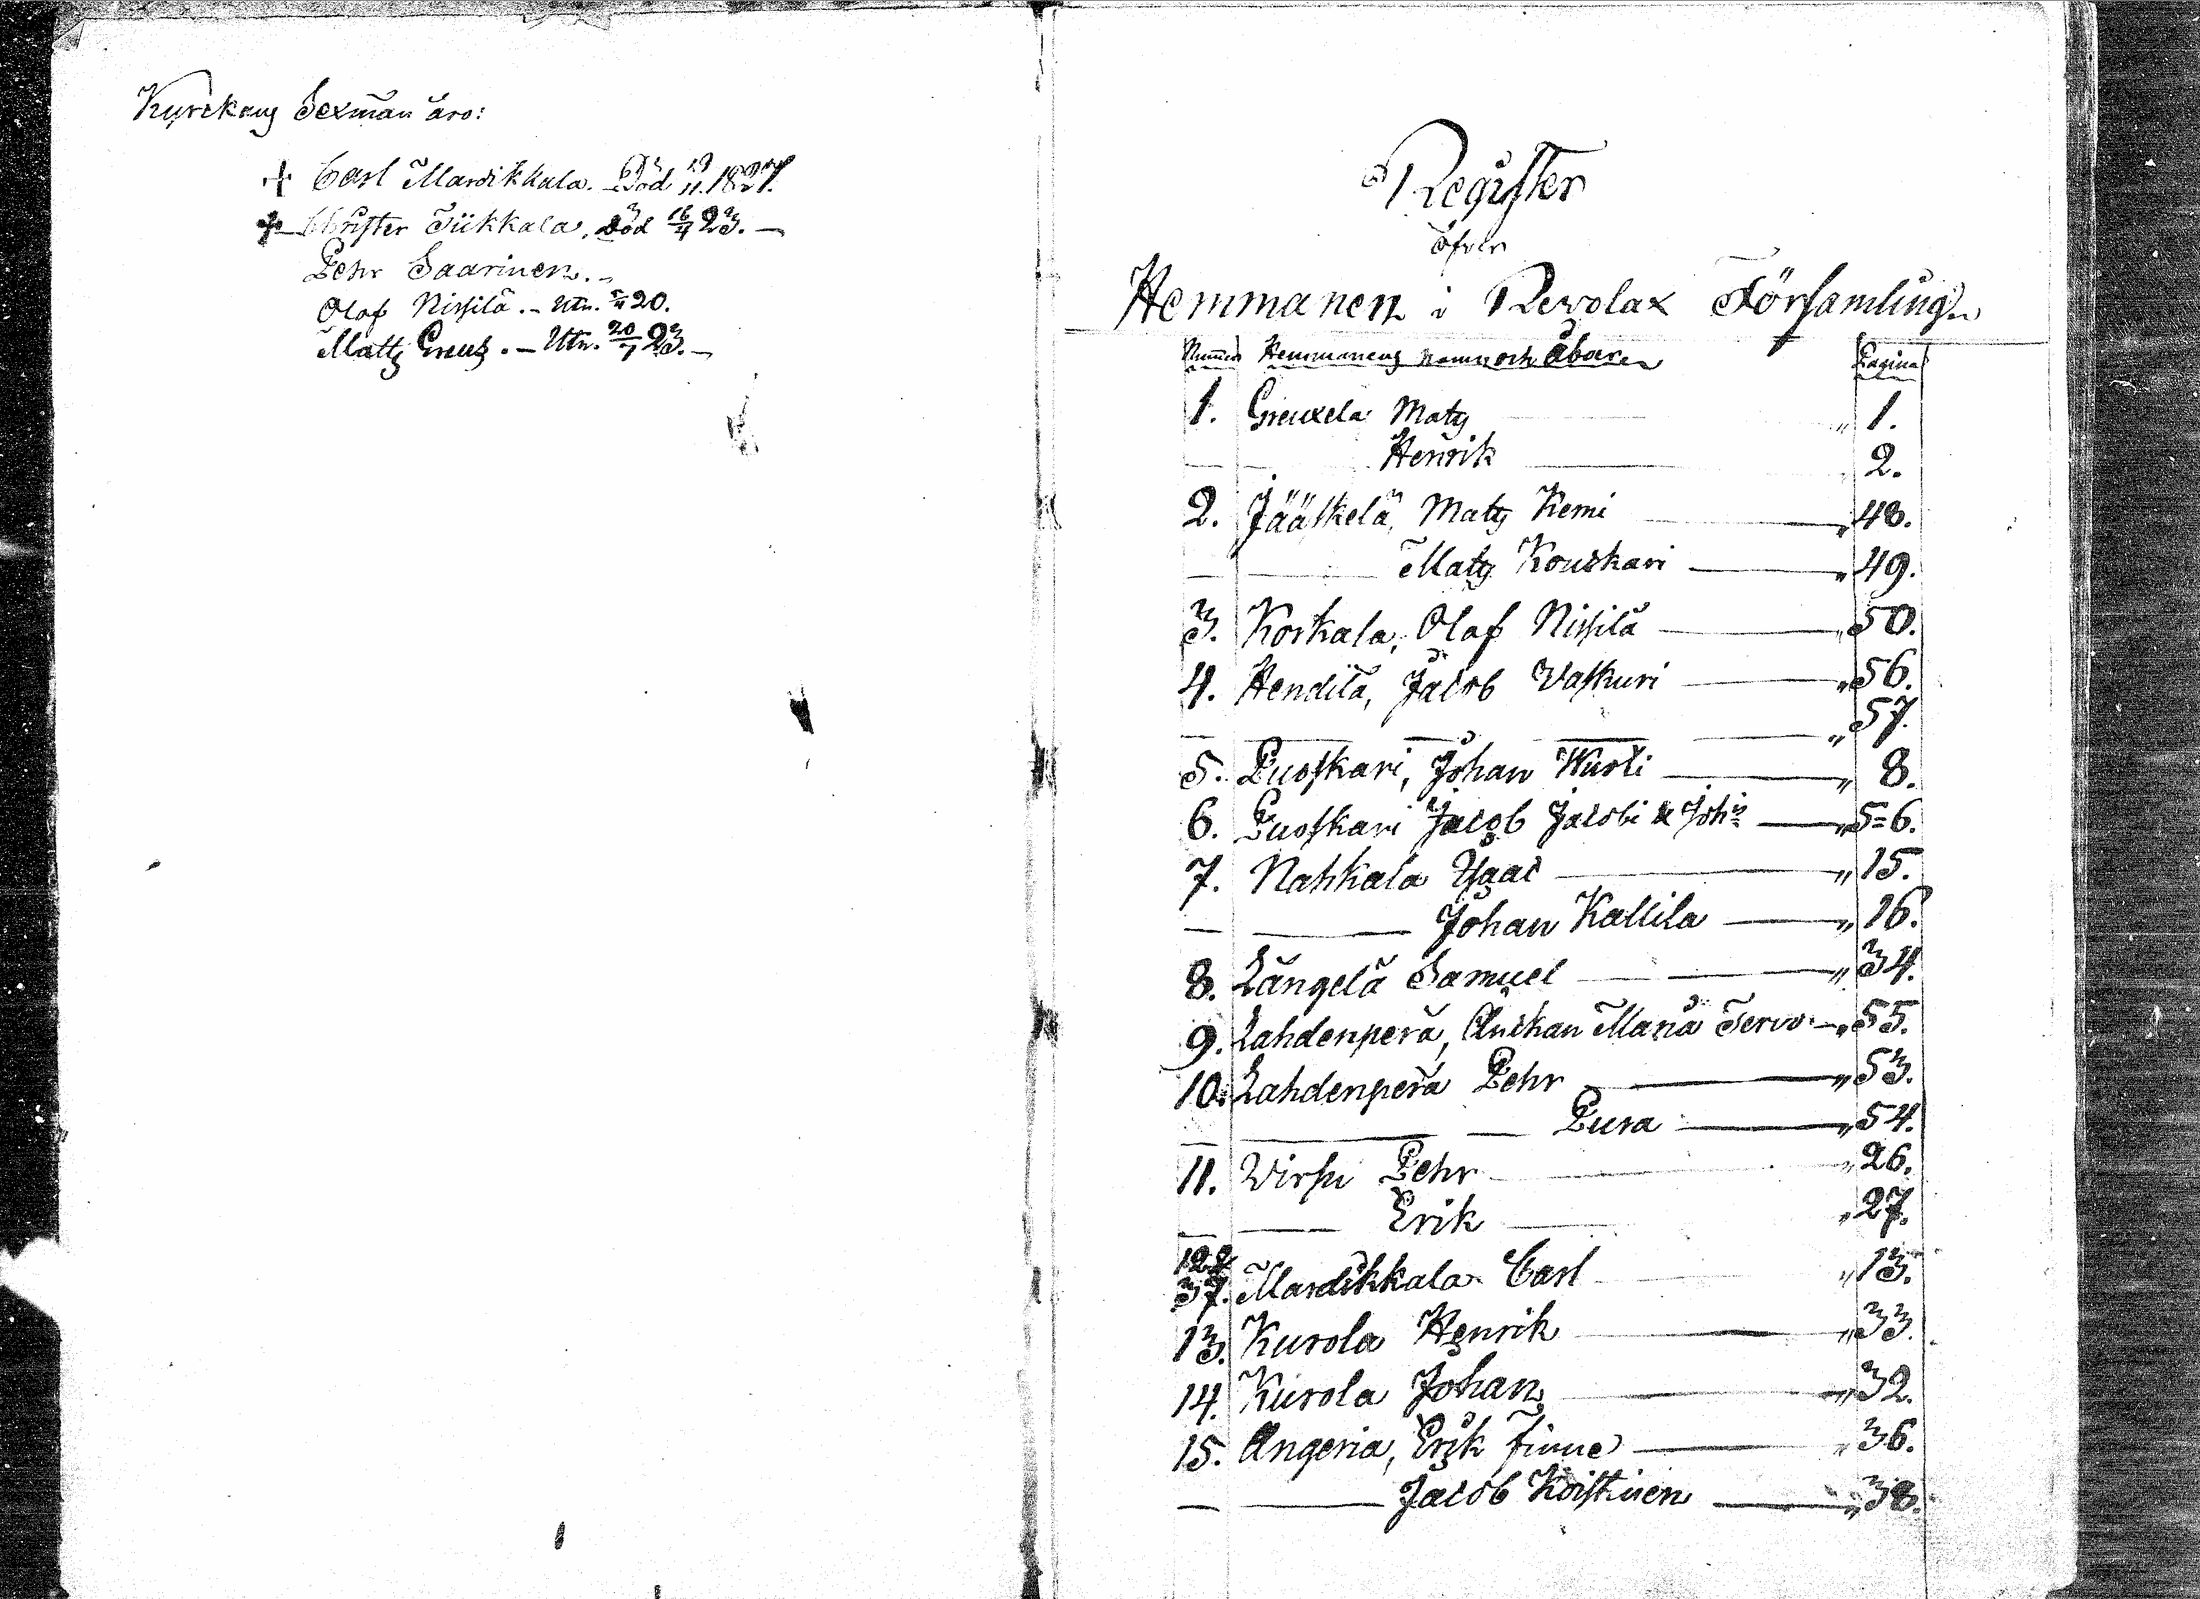 Kyrckans Sexmän äro:
+ Carl Mardikkala. Död 19/11. 1827.
+ Christer Tiikkala, död 16/4 23. —
Pehr Saarinen. —
Olof Nissilä. — Utn. 20.
Matts Greus. — Utn. 20/7 23. —
Register
öfver
Hemmanen i Revolax Församling.
Numer Hemmanens namn och Åboer Pagina
1. Greuxela Mats „ 1.
— — Henrik — 2.
2. Jääskelä, Mats Kemi — „ 48.
— — Mats Kouskari — „ 49.
3. Korkala, Olof Nissilä — „ 50.
4. Hendilä, Jacob Vaskuri — „ 56.
— — — — — „ 57.
5. Puoskari, Johan Kurti — „ 8.
6. Puoskari Jacob Jacobi & Joh:s — „ 5=6.
7. Nahkala Isaac — „ 15.
— — Johan Kallila — „ 16.
8. Längelä Samuel — „ 34.
9. Lahdenperä, Änckan Maria Tervo — „ 55.
10. Lahdenperä Pehr — „ 53.
— — — Pura — „ 54.
11. Virsu Pehr — „ 26.
— — Erik — „ 27.
12 &
37. Mardikkala Carl — „ 13.
13. Kurola Henrik — „ 33.
14. Kurola Johan — „ 32.
15. Angeria, Erik Finne — „ 36.
— — Jacob Koistinen — „ 38.